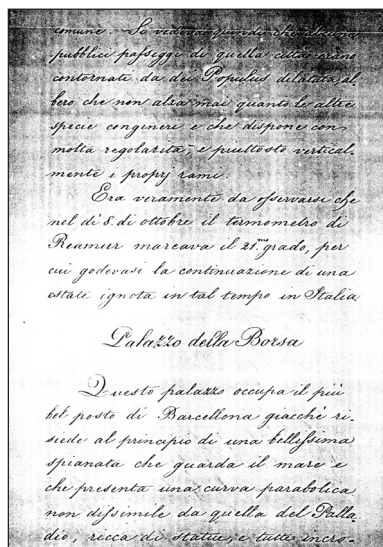 comune. Io vedeva quindi che alcuni
pubblici passeggi di quella città erano
contornati da dei Populus dilatata, al-
bero che non alza mai quanto le altre
specie congeneri e che dispone con
molta regolarità, e piuttosto vertical-
mente i proprj rami.
Era veramente da osservarsi che
nel dì 8. di ottobre il termometro di
Reaumur marcava il 21.mo grado, per
cui godevasi la continuazione di una
estate ignota in tal tempo in Italia
Palazzo della Borsa
Questo palazzo occupa il più
bel posto di Barcellona giacchè ri-
siede al principio di una bellissima
spianata che guarda il mare e
che presenta una curva parabolica
non dissimile da quella del Palla-
dio, ricca di statue, e tutte incro-